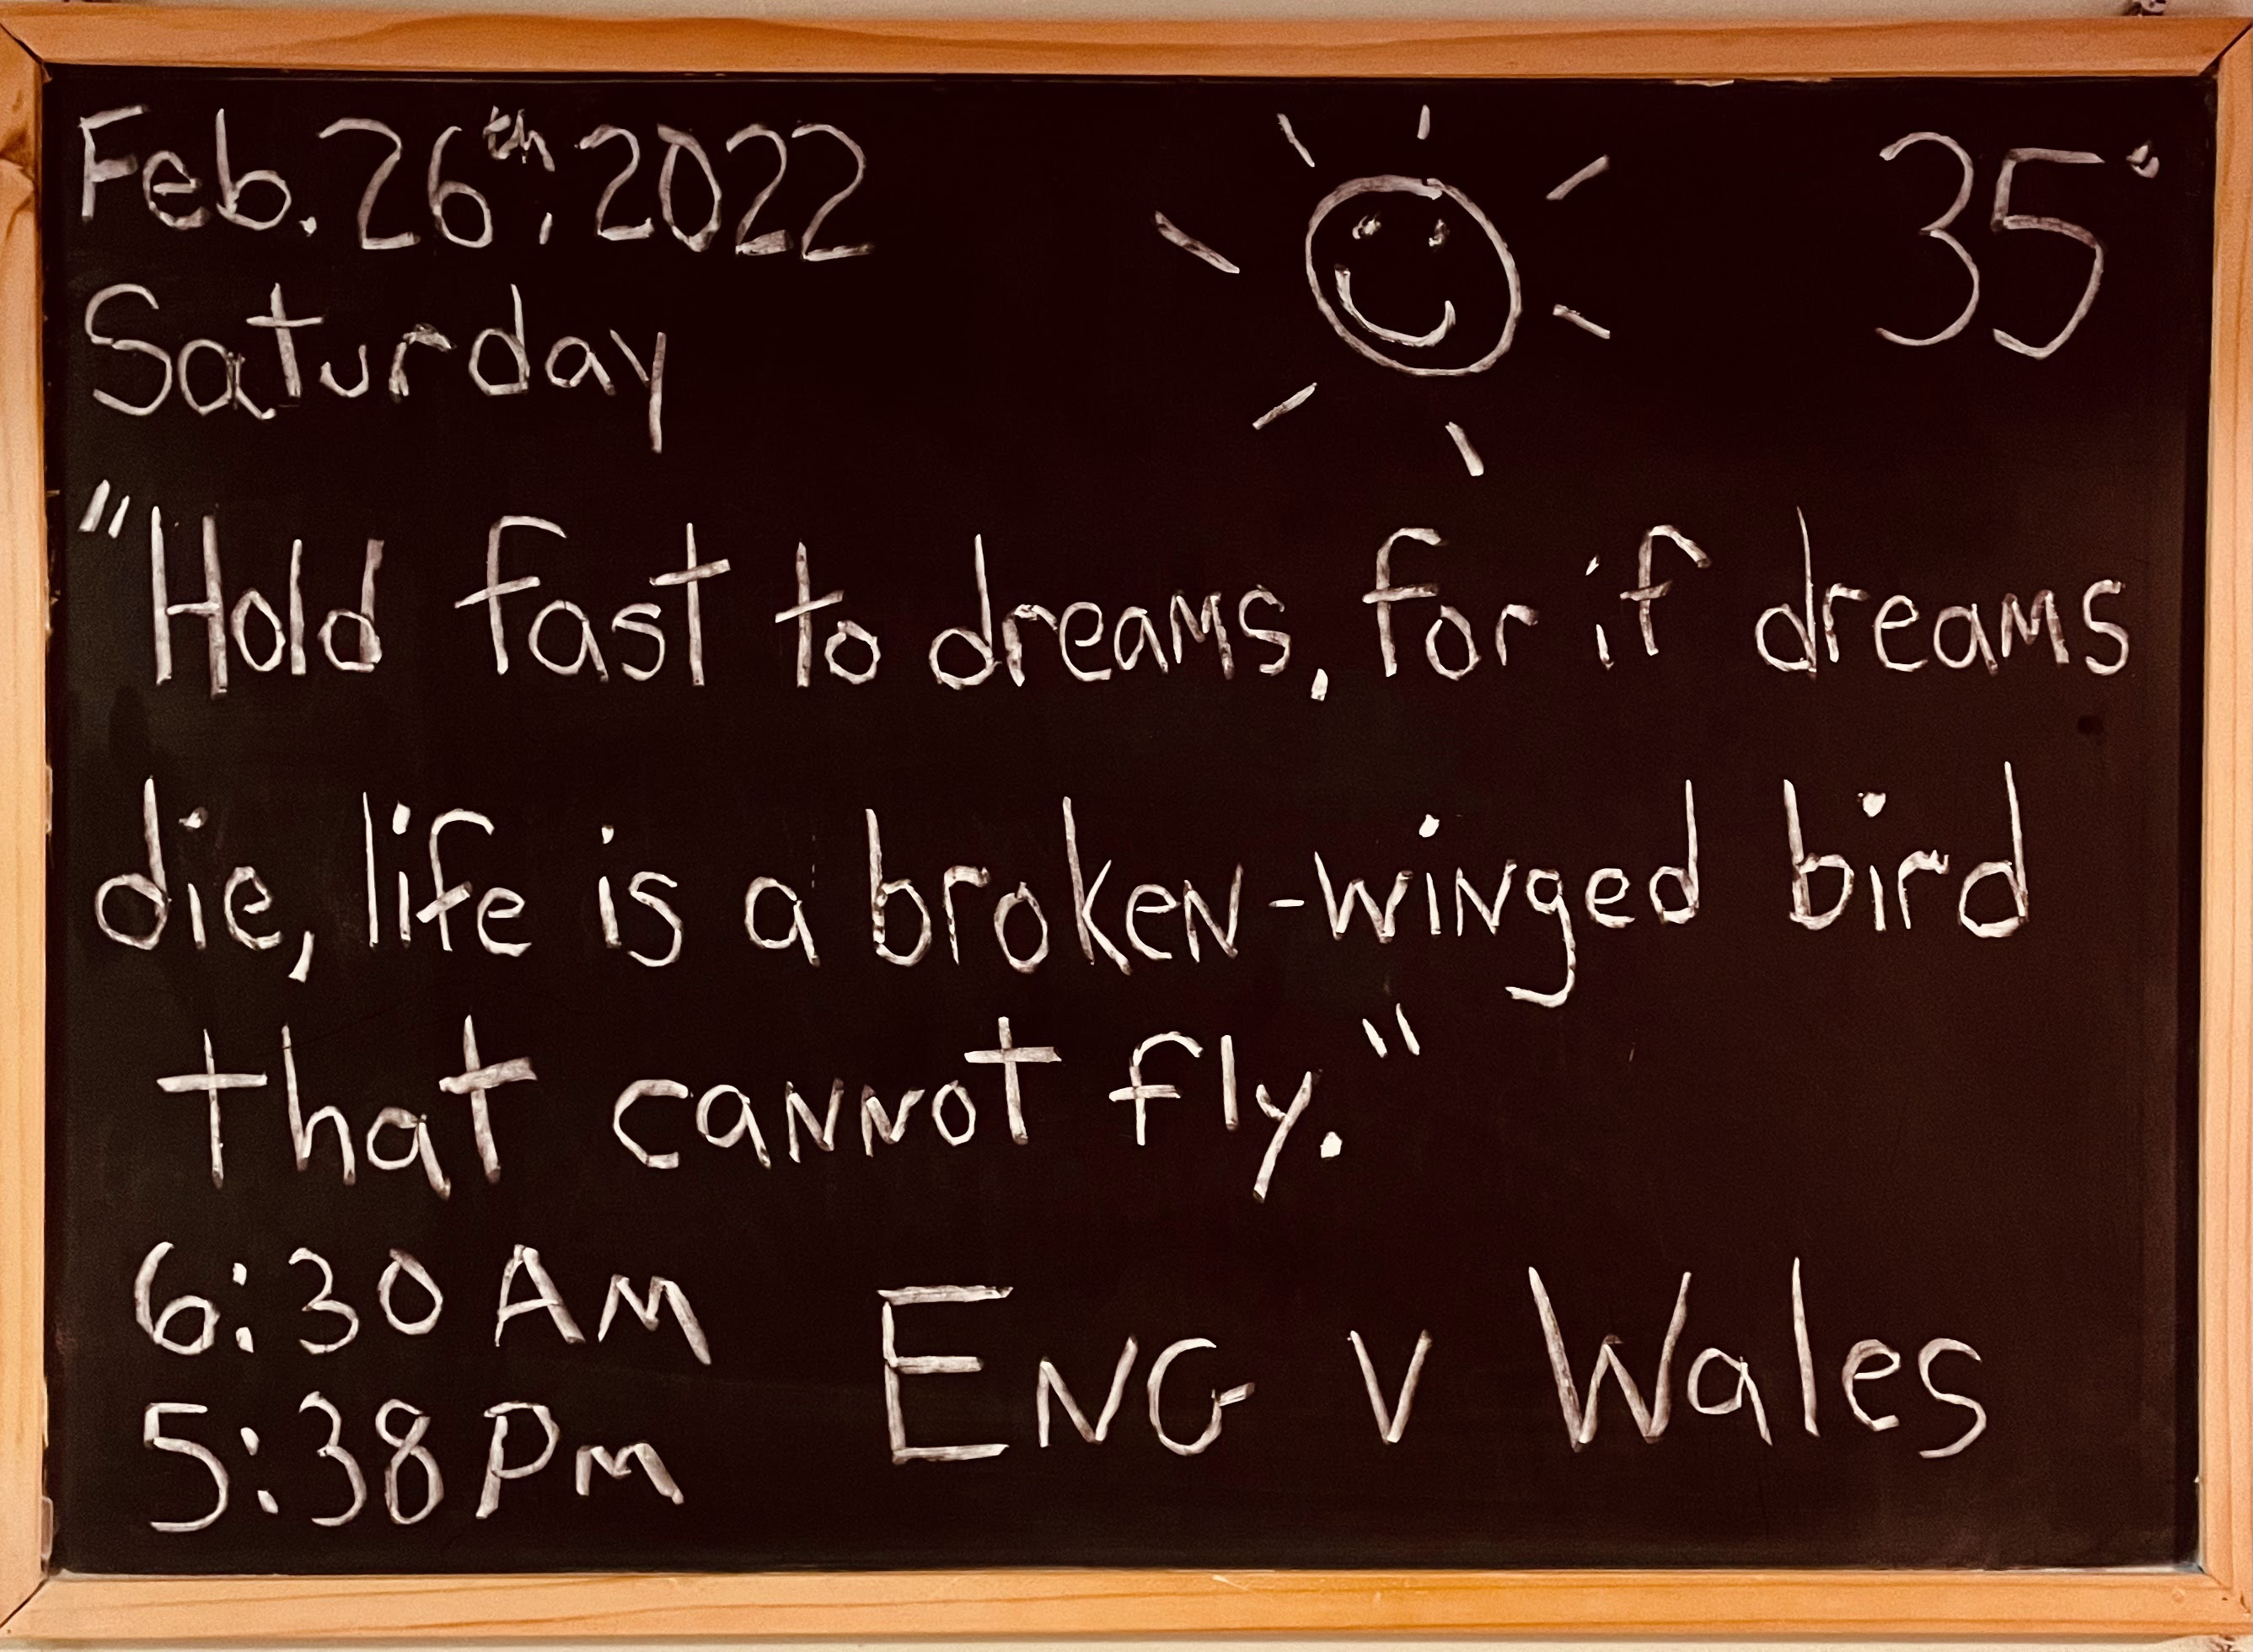 Feb. 26th, 2022
35°
Saturday
"Hold fast to dreams, for if dreams
die, life is a broken-winged bird
that cannot fly."
6:30 AM
5:38 PM
ENG v Wales